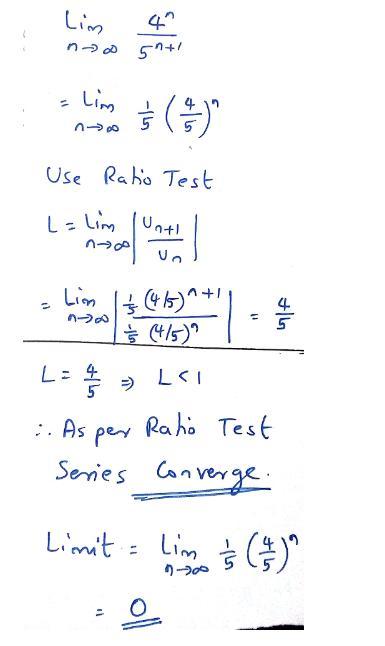 Lim 4^n
n→∞ 5^n+1
= Lim 1/5 (4/5)^n
n→∞
Use Ratio Test
L = Lim | U_n+1 / U_n |
n→∞
= Lim | 1/5 (4/5)^n+1 / 1/5 (4/5)^n | = 4/5
n→∞
L = 4/5 ⇒ L < 1
∴ As per Ratio Test
Series Converge.
Limit = Lim 1/5 (4/5)^n
n→∞
= 0